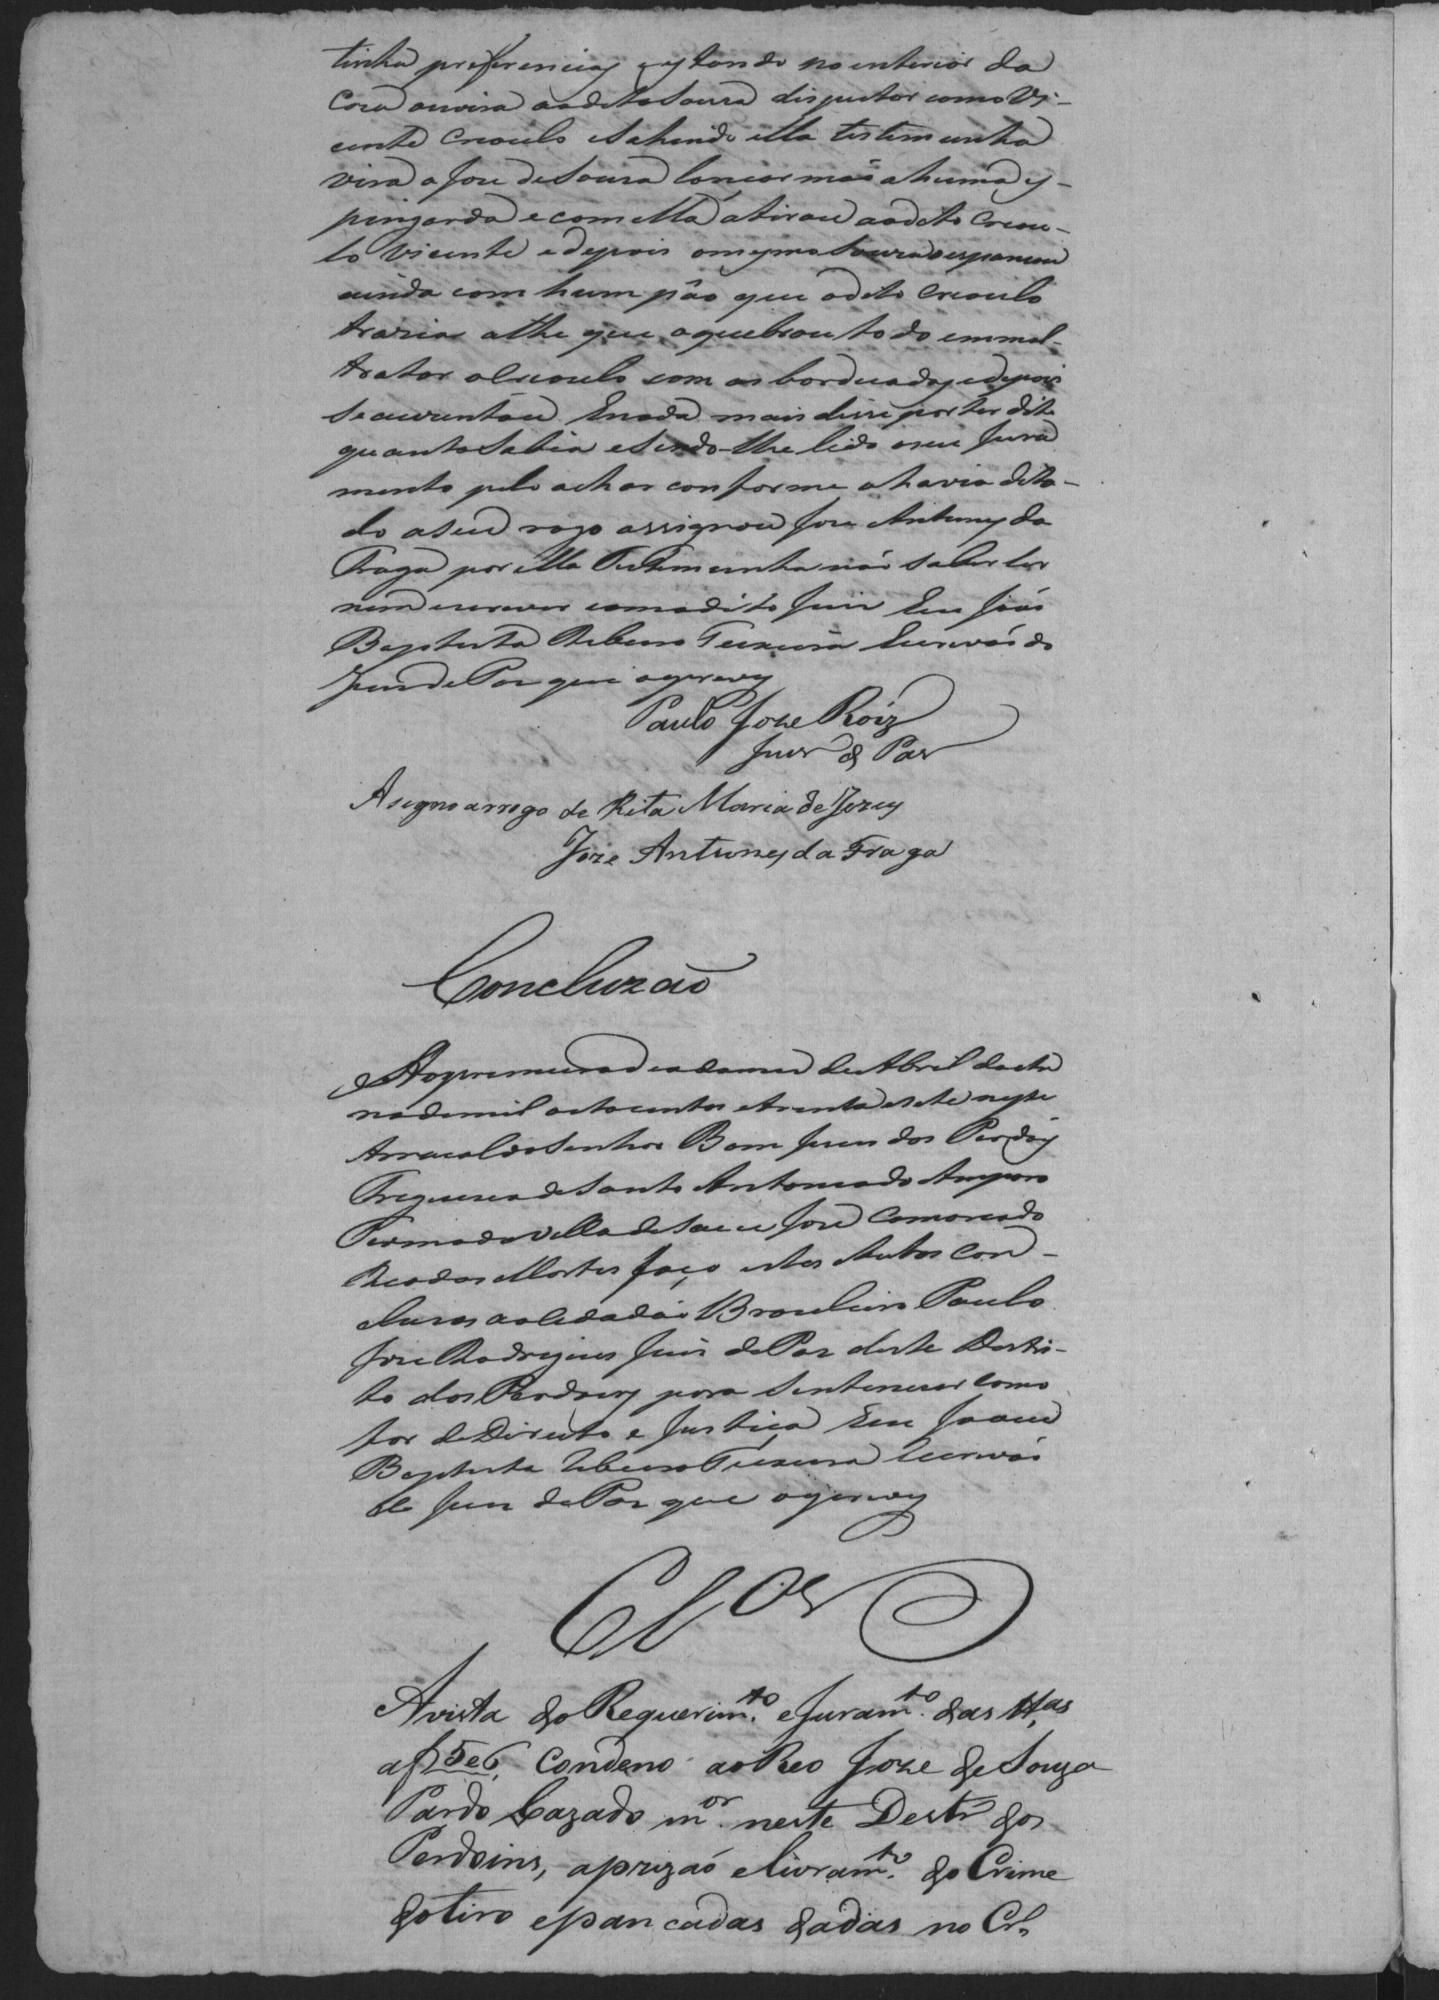 tinha preferencias estando no enterior da
Coza ouvira ao dito Souza disputar como Vi-
cente Creoulo e Sahindo ella testemunha
vira a Joze de Souza loncar mão a huma es-
pingarda e com ella atirou ao dito Creou-
lo Vicente e depois o mesmo Souza espancou
ainda com hum páo que o dito Creoulo
trazia athe que o quebrou todo em mal-
tratar o Creoulo com as borduadas e depois
se auzentou E nada mais disse por ter dito
quanto Sabia e Sendo-lhe lido o seu Jura
mento pelo achar conforme o havia dita-
do a seu rogo assignou Joze Antunes da
Fraga por ella Testemunha não saber ler
nem escrever com o dito Juiz Eu João
Baptista Ribeiro Teixeira Escrivão do
Juiz de Paz que o escrevy
Paulo Joze Roiz
Juiz de Paz
Asigno arrogo de Rita Maria de Jezus
Joze Antunes da Fraga
Concluzão
Ao primeiro dia do mes de Abril do an
no de mil oito centos e trinta e sete neste
Arraial do Senhor Bom Jesus dos Perdões
Freguesia de Santo Antonio do Amparo
Termo da Villa de São Joze Comarca do
Rio das Mortes faço estes Autos Con-
cluzos ao Cidadão Brazileiro Paulo
Joze Rodrigues Juis de Paz deste Destri-
to dos Perdoens para Sentenciar como
for de Direito e Justiça Eu Joam
Baptista Ribeiro Teixeira Escrivão
do Juiz de Paz que o escrevy
Clos
A vista do Requerimto. e Juramto. das ttas.
a f 5 e 6, Condeno ao Reo Joze de Souza
Pardo Cazado mor. neste Destro dos
Perdoins, a prizaõ e livramto. do Crime
do tiro e pancadas dadas no Crlo